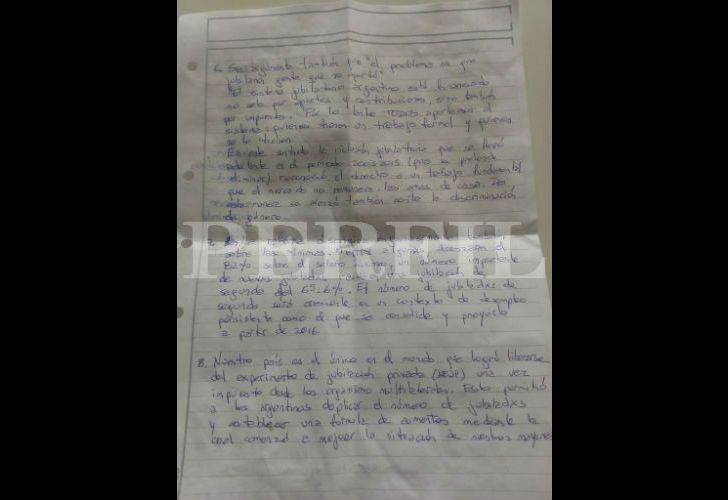 6. Se argumenta también que "el problema es que
jubilaron gente que no aportó".
El sistema jubilatorio argentino está financiado
no solo por aportes y contribuciones, sino también
por impuestos. Por lo tanto todos aportamos al
sistema: quienes tienen un trabajo formal y quienes
no lo tienen.
En este sentido la inclusión jubilatoria que se llevó
adelante en el período 2003-2015 (que se pretende
eliminar) reconoció el derecho a un trabajo fundamental
que el mercado no remunera: las amas de casa.
se avanzó también contra la discriminación
de género.
PERFIL
sobre las mínimas. Mientras algunas alcanzan el
82% sobre el salario mínimo, un número importante
de nuevos jubilados jubilación de
segunda del 65,6%. El número de jubiladxs de
segunda será creciente en un contexto de desempleo
persistente como el que se consolida y proyecta
a partir de 2016.
8. Nuestro país es el único en el mundo que logró liberarse
del experimento de jubilación privada (AFJP) una vez
impuesto desde los organismos multilaterales. Esto permitió
a los argentinos duplicar el número de jubiladxs
y establecer una fórmula de aumentos mediante la
cual comenzó a mejorar la situación de nuestros mayores